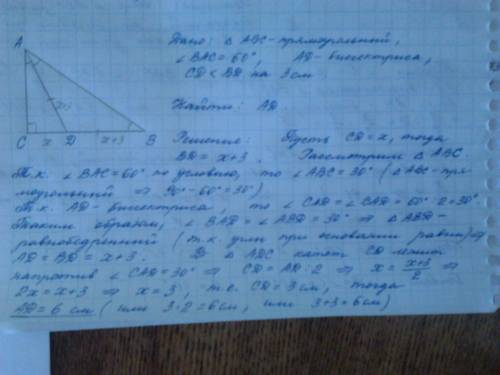 Дано: △ ABC - прямоугольный,
∠ BAC = 60°, AD - биссектриса,
CD < BD на 3 см
Найти: AD.
A
x+3
C x D x+3 B
Решение: Пусть CD = x, тогда
BD = x+3. Рассмотрим △ ABC.
Т.к. ∠ BAC = 60° по условию, то ∠ ABC = 30° (△ ABC - пря-
моугольный ⇒ 90° - 60° = 30°)
Т.к. AD - биссектриса, то ∠ CAD = ∠ BAD = 60° : 2 = 30°
Таким образом, ∠ BAD = ∠ ABD = 30° ⇒ △ ABD -
равнобедренный (т.к. углы при основании равны) ⇒
AD = BD = x+3. В △ ADC катет CD лежит
напротив ∠ CAD = 30° ⇒ CD = AD : 2 ⇒ x = (x+3)/2 ⇒
2x = x+3 ⇒ x = 3, т.е. CD = 3 см, тогда
AD = 6 см (или 3·2 = 6 см, или 3+3 = 6 см)